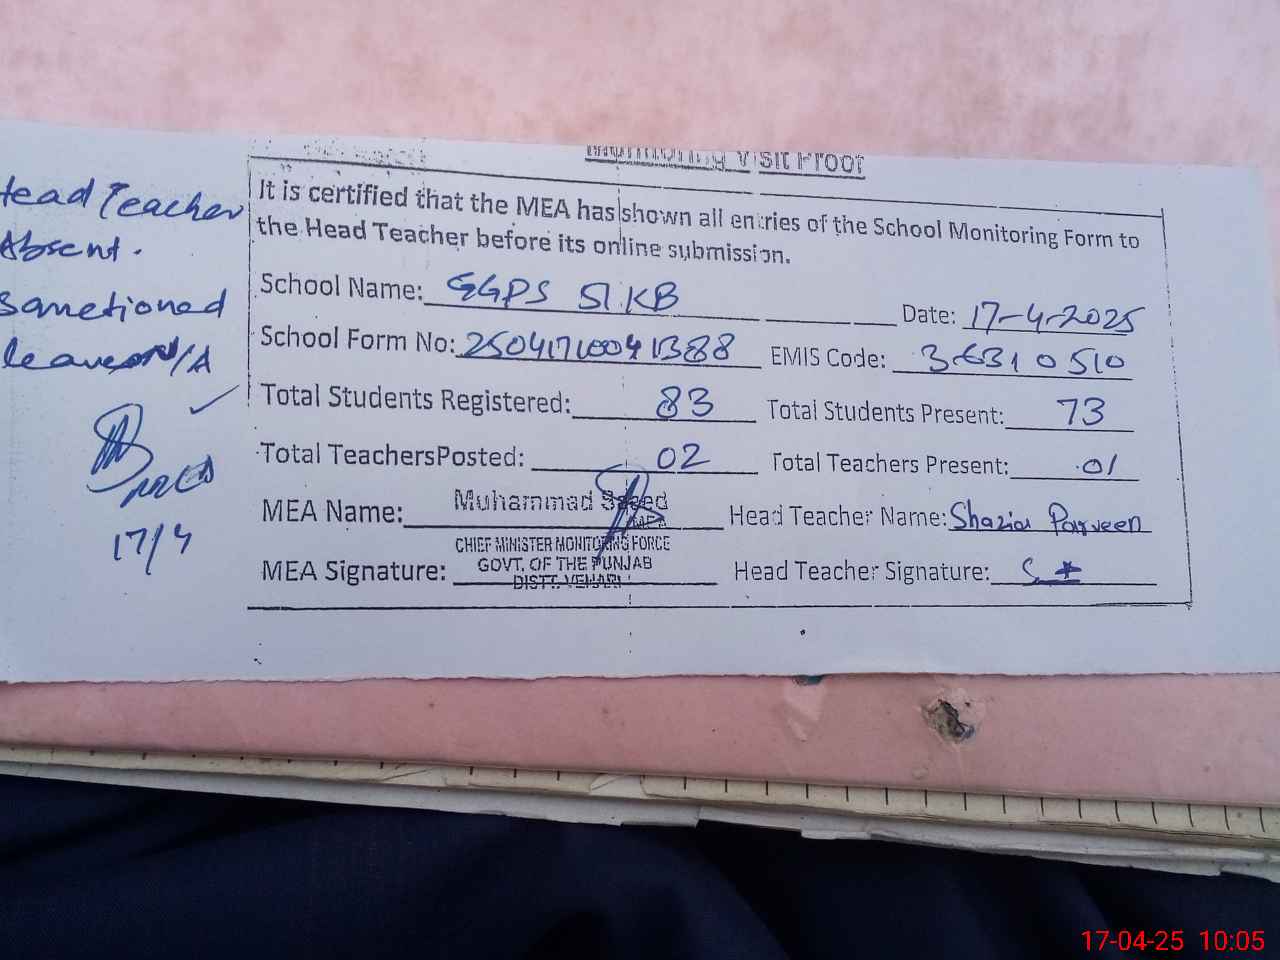 Monitoring Visit Proof
Head Teacher
Absent.
Sanctioned
leave N/A
17/4
It is certified that the MEA has shown all entries of the School Monitoring Form to
the Head Teacher before its online submission.
School Name: GGPS 51 KB Date: 17-4-2025
School Form No: EMIS Code: 36310510
Total Students Registered: 83 Total Students Present: 73
Total TeachersPosted: 02 Total Teachers Present: 01
MEA Name: Muhammad Saeed Head Teacher Name: Shazia Parveen
MEA
CHIEF MINISTER MONITORING FORCE
GOVT. OF THE PUNJAB
MEA Signature: DISTT. VEHARI Head Teacher Signature:
17-04-25 10:05